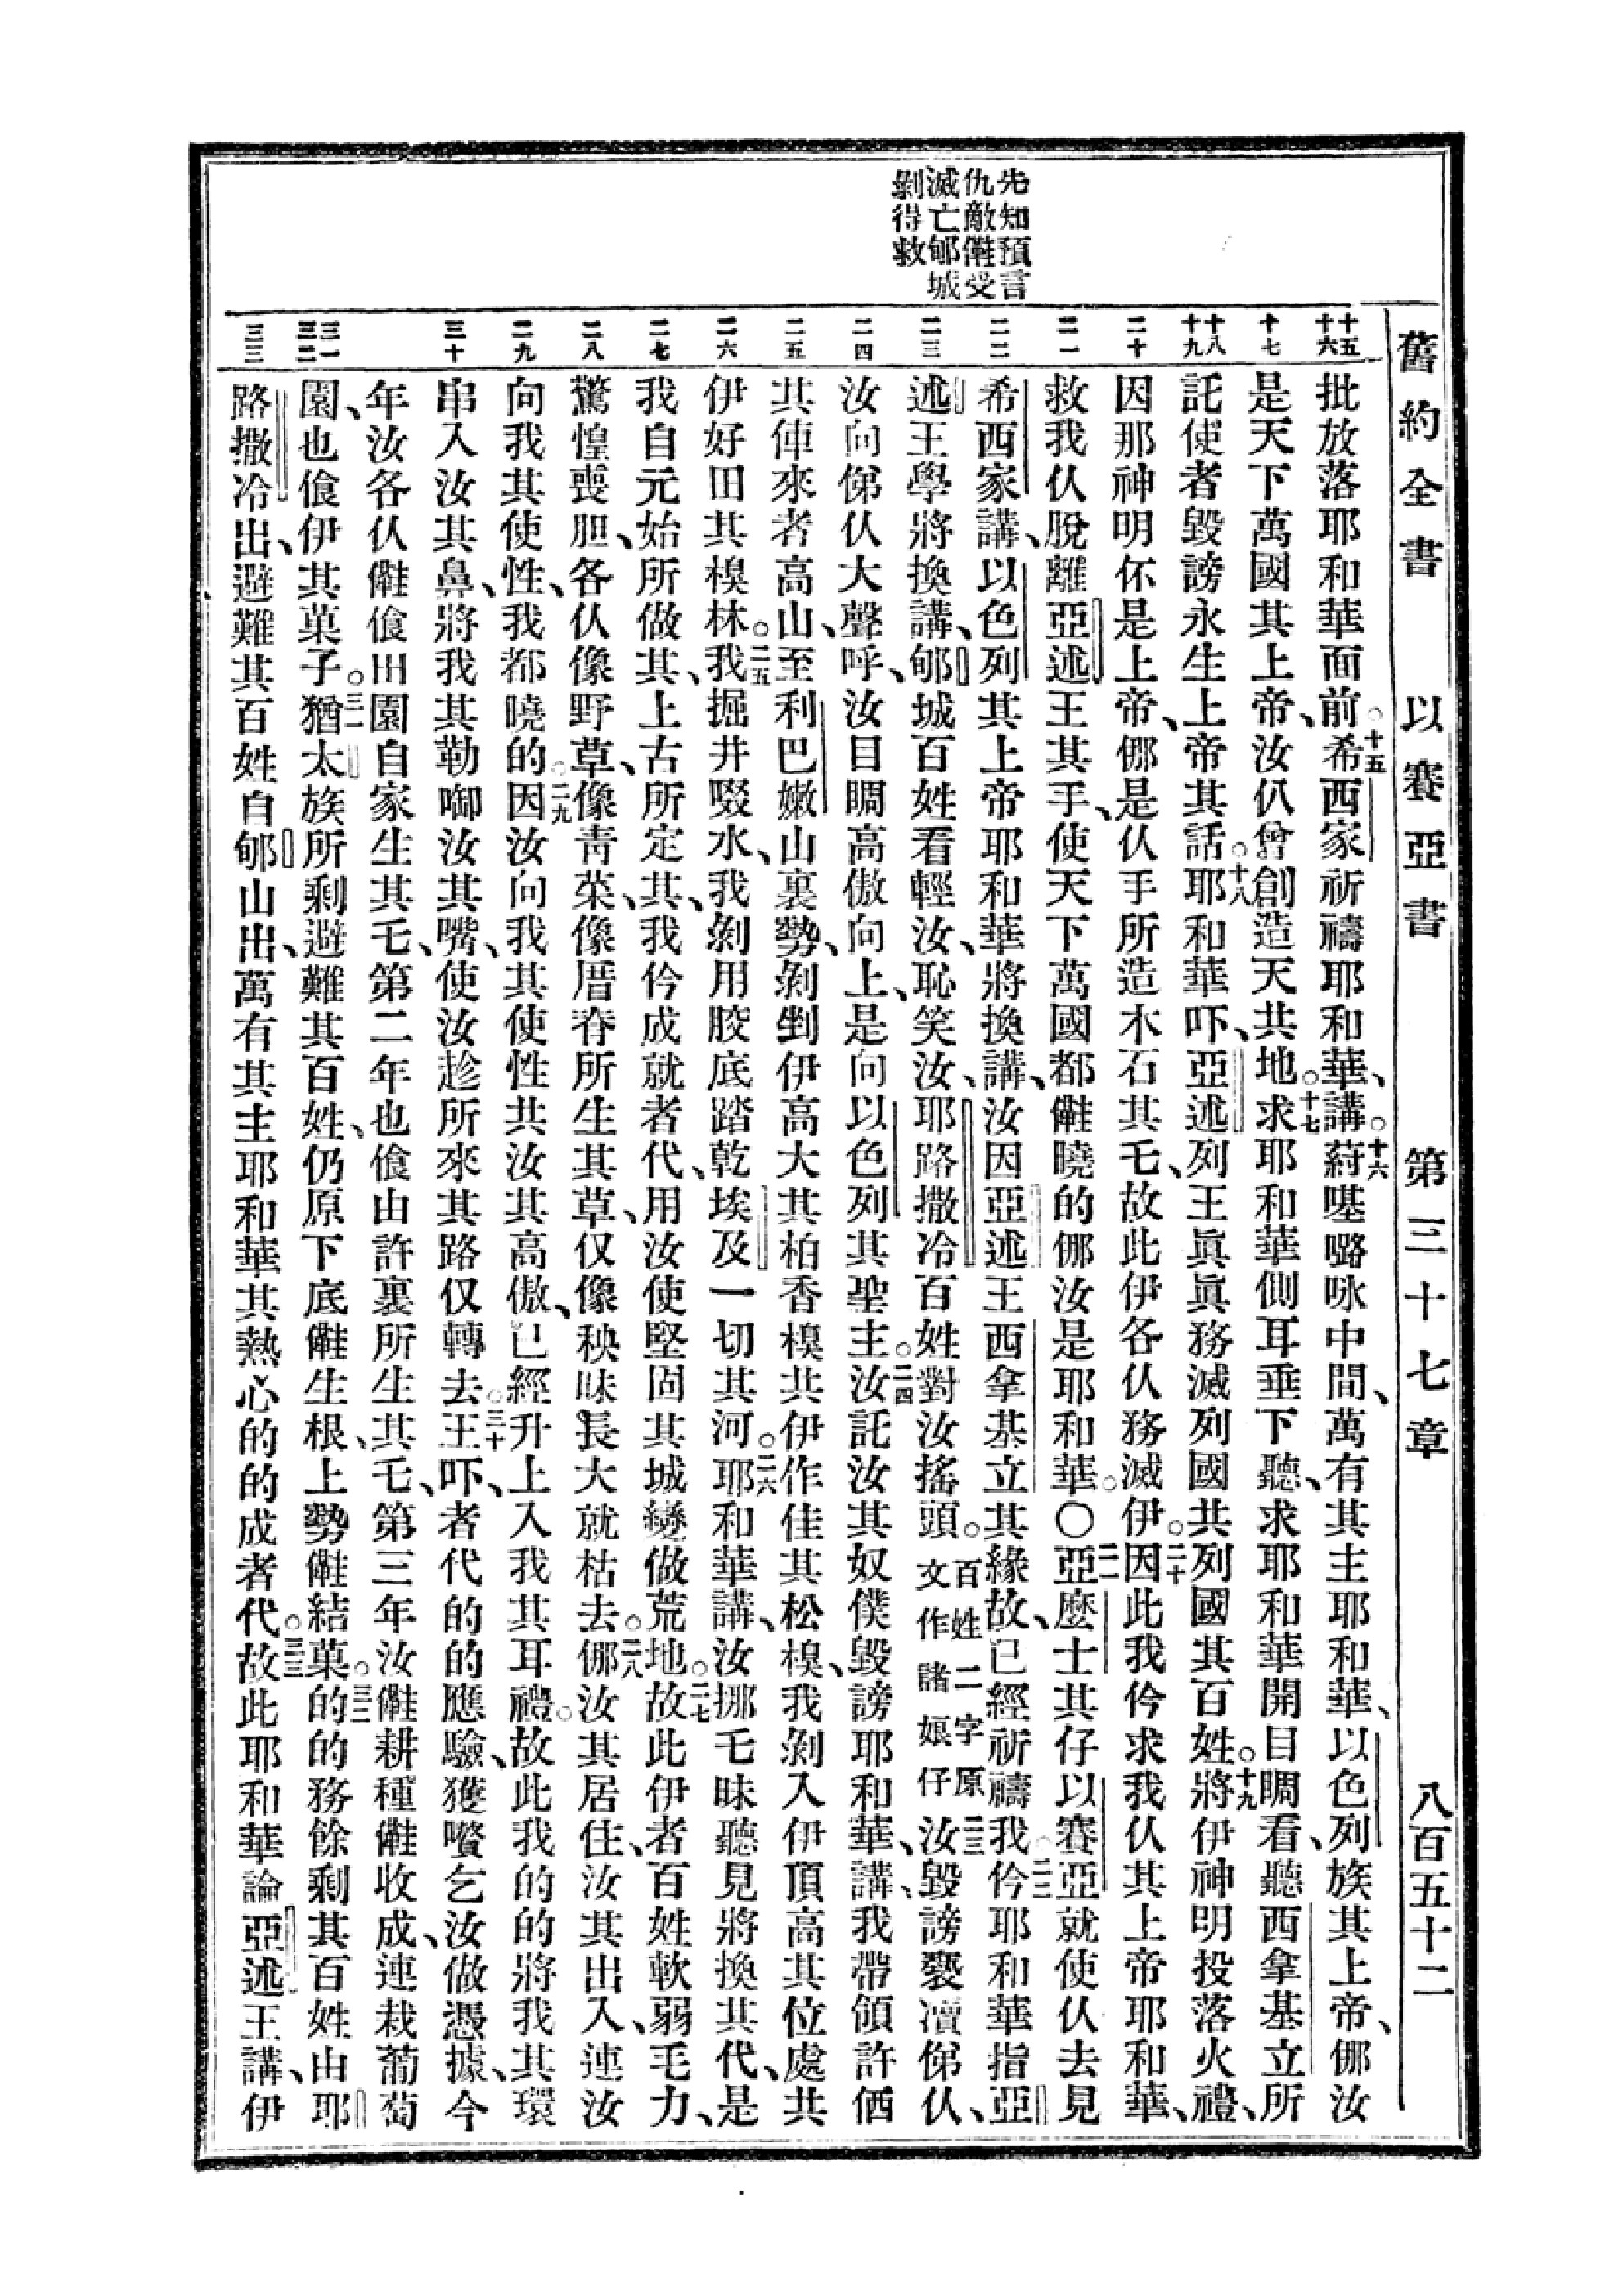 舊約全書 以賽亞書 第三十七章 八百五十二
先知預言
仇敵㒁受
滅亡郇城
剝得救
十五 十六 十七 十八 十九 二十 二一 二二 二三 二四 二五 二六 二七 二八 二九 三十 三一 三二 三三
批放落耶和華面前。十五希西家祈禱耶和華、講。十六蒔噻㗖咏中間、萬有其主耶和華、以色列族其上帝、㑚汝
是天下萬國其上帝、汝仈曾創造天共地。十七求耶和華側耳垂下聽、求耶和華開目睭看、聽西拿基立所
託使者毀謗永生上帝其話。十八耶和華吓、亞述列王眞眞務滅列國共列國其百姓。十九將伊神明投落火禮、
因那神明伓是上帝、㑚是仈手所造木石其乇、故此伊各仈務滅伊。二十因此我仱求我仈其上帝耶和華、
救我仈脫離亞述王其手、使天下萬國都㒁曉的㑚汝是耶和華。〇二一亞麽士其仔以賽亞就使仈去見
希西家講、以色列其上帝耶和華將換講、汝因亞述王西拿基立其緣故、已經祈禱我。二二仱耶和華指亞
述王學將換講、郇城百姓看輕汝、恥笑汝、耶路撒冷百姓對汝搖頭。百姓二字原文作諸娘仔二三汝毀謗褻凟俤仈、
汝向俤仈大聲呼、汝目睭高傲向上、是向以色列其聖主。二四汝託汝其奴僕毀謗耶和華講、我帶領許𠵼
其俥來者高山、至利巴嫩山裏勢、剝剉伊高大其柏香樔共伊作佳其松樔、我剝入伊頂高其位處共
伊好田其樔林。二五我掘井啜水、我剝用骹底踏乾埃及一切其河。二六耶和華講、汝挪乇昧聽見將換其代、是
我自元始所做其、上古所定其、我仱成就者代、用汝使堅固其城變做荒地。二七故此伊者百姓軟弱毛力、
驚惶喪胆、各仈像野草、像靑菜、像厝脊所生其草、仅像秧昧長大就枯去。二八㑚汝其居住、汝其出入連汝
向我其使性、我都曉的。二九因汝向我其使性共汝其高傲、已經升上入我其耳禮。故此我的的將我其環
串入汝其鼻、將我其勒啣汝其嘴、使汝趁所來其路仅轉去。三十王吓、者代的的應驗、獲噬乞汝做憑據、今
年汝各仈㒁飧田園自家生其乇、第二年也飧由許裏所生其乇、第三年汝㒁耕種㒁收成、連栽葡萄
園、也飧伊其菓子。三一猶太族所剩避難其百姓、仍原下底㒁生根、上勢㒁結菓。三二的的務餘剩其百姓由耶
路撒冷出、避難其百姓自郇山出、萬有其主耶和華其熱心的的成者代。三三故此耶和華論亞述王講、伊